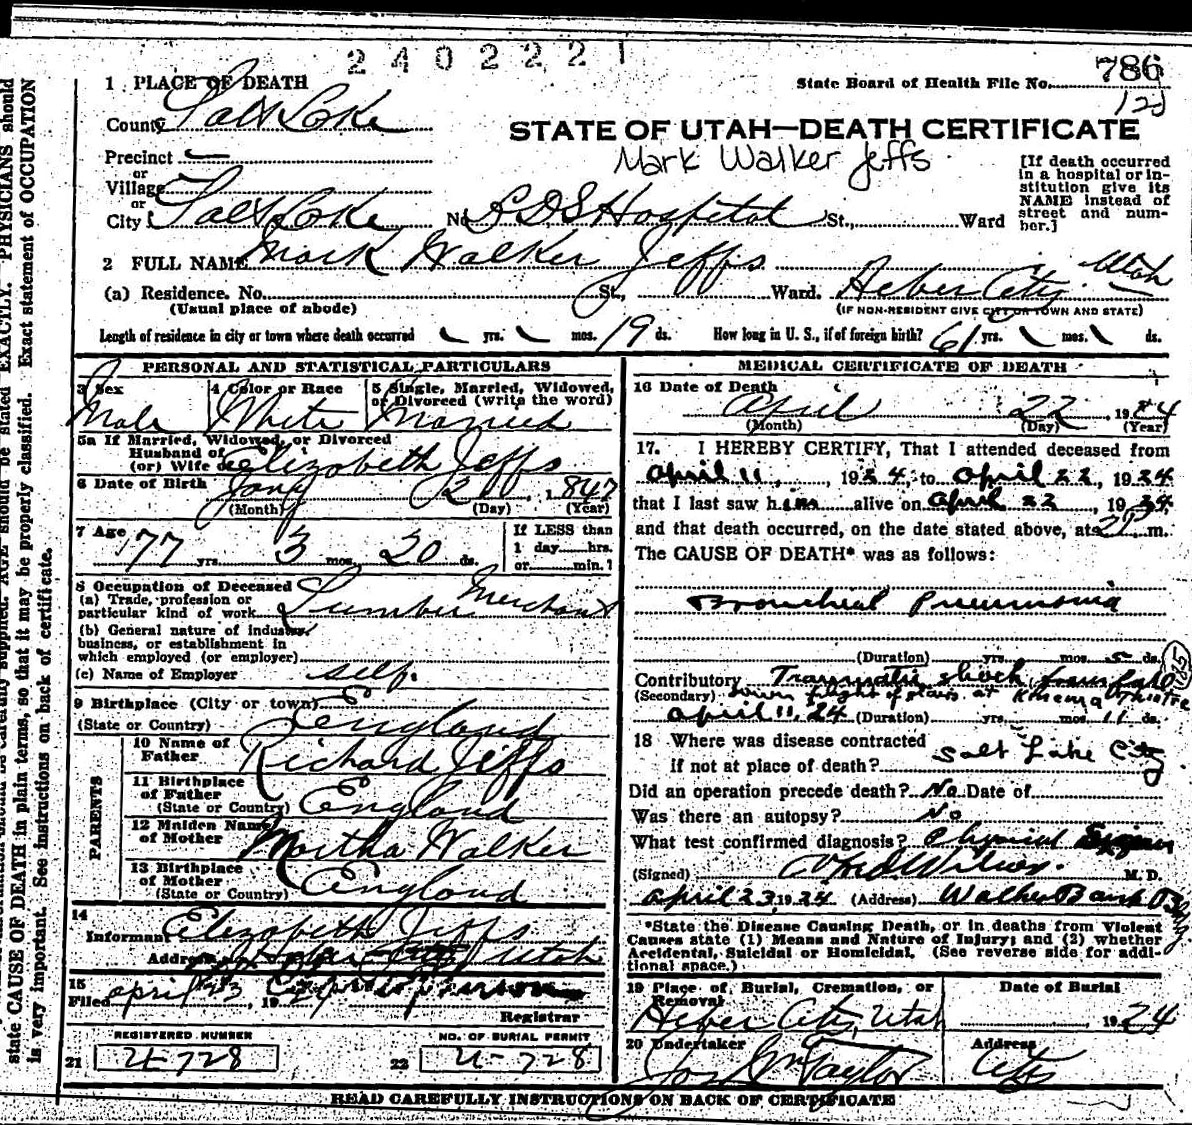 2402221
1 PLACE OF DEATH
State Board of Health File No. 786
County Salt Lake
STATE OF UTAH—DEATH CERTIFICATE
Mark Walker Jeffs
Precinct
or
Village
or
City Salt Lake No. LDS Hospital St., Ward
[If death occurred in a hospital or institution give its NAME instead of street and number.]
2 FULL NAME Mark Walker Jeffs
(a) Residence. No. St., Ward. Heber City Utah
(Usual place of abode) (IF NON-RESIDENT GIVE CITY OR TOWN AND STATE)
Length of residence in city or town where death occurred yrs. mos. 19 ds. How long in U. S., if of foreign birth? 61 yrs. mos. ds.
PERSONAL AND STATISTICAL PARTICULARS
3 Sex 4 Color or Race 5 Single, Married, Widowed, or Divorced (write the word)
Male White Married
5a If Married, Widowed, or Divorced
Husband of
(or) Wife of Elizabeth Jeffs
6 Date of Birth Jany 2 1847
(Month) (Day) (Year)
7 Age 77 yrs. 3 mos. 20 ds.
If LESS than
1 day hrs.
or min.?
8 Occupation of Deceased
(a) Trade, profession or
particular kind of work Lumber Merchant
(b) General nature of industry,
business, or establishment in
which employed (or employer)
(c) Name of Employer self.
9 Birthplace (City or town)
(State or Country) England
PARENTS
10 Name of
Father Richard Jeffs
11 Birthplace
of Father
(State or Country) England
12 Maiden Name
of Mother Martha Walker
13 Birthplace
of Mother
(State or Country) England
14
Informant Elizabeth Jeffs
Address Heber Utah
15
Filed April 23, 19 24
Registrar
REGISTERED NUMBER NO. OF BURIAL PERMIT
21 U-728 22 U-728
MEDICAL CERTIFICATE OF DEATH
16 Date of Death
April 22, 1924
(Month) (Day) (Year)
17. I HEREBY CERTIFY, That I attended deceased from
April 11, 1924, to April 22, 1924
that I last saw him alive on April 22, 1924,
and that death occurred, on the date stated above, at m.
The CAUSE OF DEATH* was as follows:
Bronchial Pneumonia
(Duration) yrs. mos. 5 ds.
Contributory Traumatic shock from fall
(Secondary) down flight of stairs at Kinema Theatre
April 11, 24 (Duration) yrs. mos. 11 ds.
18 Where was disease contracted
If not at place of death? Salt Lake City
Did an operation precede death? No Date of
Was there an autopsy? No
What test confirmed diagnosis? Physical
(Signed) Wilson. M. D.
April 23, 1924 (Address) Walker Bank Bldg
*State the Disease Causing Death, or in deaths from Violent
Causes state (1) Means and Nature of Injury; and (2) whether
Accidental, Suicidal or Homicidal. (See reverse side for addi-
tional space.)
19 Place of Burial, Cremation, or Removal Date of Burial
Heber City, Utah 1924
20 Undertaker Address
Jos Wm Taylor City
READ CAREFULLY INSTRUCTIONS ON BACK OF CERTIFICATE
supplied. AGE should be stated EXACTLY. PHYSICIANS should
state CAUSE OF DEATH in plain terms, so that it may be properly classified. Exact statement of OCCUPATION
is very important. See instructions on back of certificate.